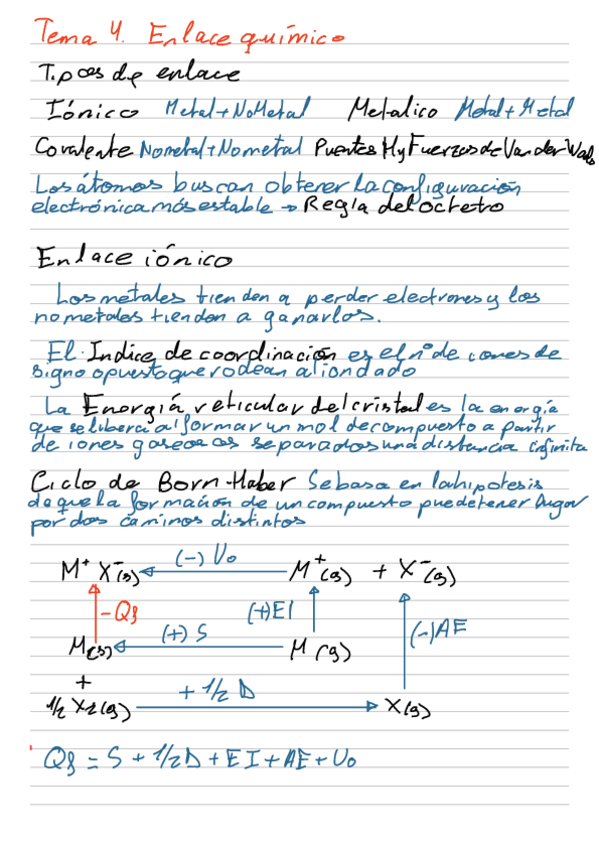 Tema 4. Enlace químico
Tipos de enlace
Iónico Metal+NoMetal Metalico Metal+Metal
Covalente Nometal+Nometal Puentes H y Fuerzas de Van der Wals
Los átomos buscan obtener la configuración
electrónica más estable → Regla del octeto
Enlace iónico
Los metales tienden a perder electrones y los
no metales tienden a ganarlos.
El Indice de coordinación es el nº de iones de
signo opuesto que rodean al ion dado
La Energía reticular del cristal es la energía
que se libera al formar un mol de compuesto a partir
de iones gaseosos separados una distancia infinita
Ciclo de Born-Haber Se basa en la hipotesis
de que la formación de un compuesto puede tener lugar
por dos caminos distintos
M⁺ X⁻(s) (-) U₀ M⁺(g) + X⁻(g)
-Qf (+)EI (-)AE
M(s) (+) S M (g)
+
1/2 X2(g) + 1/2 D X(g)
Qf = S + 1/2D + EI + AE + U₀